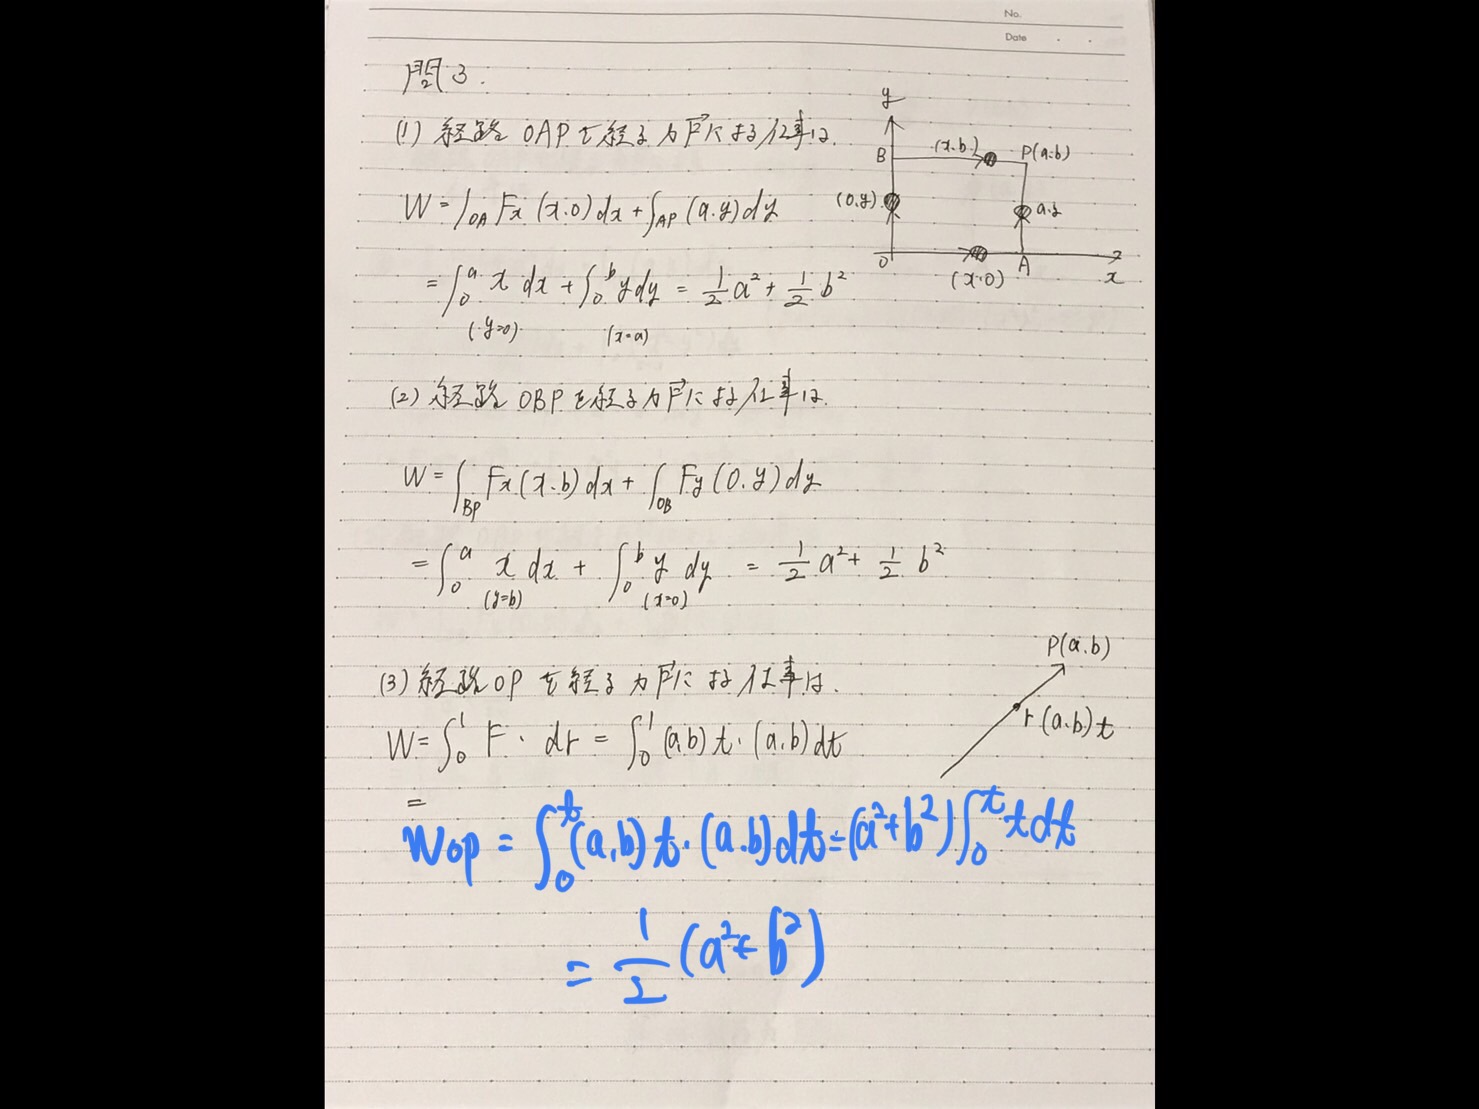 No.
Date
問3.
(1) 経路 OAP を経る力F→による仕事は.
W = ∫OA Fx (x.0) dx + ∫AP (a.y) dy
= ∫0^a x dx + ∫0^b y dy = 1/2 a² + 1/2 b²
(y=0) (x=a)
y
B
(x.b)
P(a.b)
(0.y)
a.y
O
(x.0)
A
x
(2) 経路 OBP を経る力F→による仕事は.
W = ∫BP Fx (x.b) dx + ∫OB Fy (0.y) dy
= ∫0^a x dx + ∫0^b y dy = 1/2 a² + 1/2 b²
(y=b) (x=0)
(3) 経路 OP を経る力F→による仕事は.
W = ∫0^1 F · dr = ∫0^1 (a,b) t · (a,b) dt
=
P(a.b)
r(a.b)t
Wop = ∫0^t (a,b) t · (a.b) dt = (a²+b²) ∫0^t t dt
= 1/2 (a²+b²)